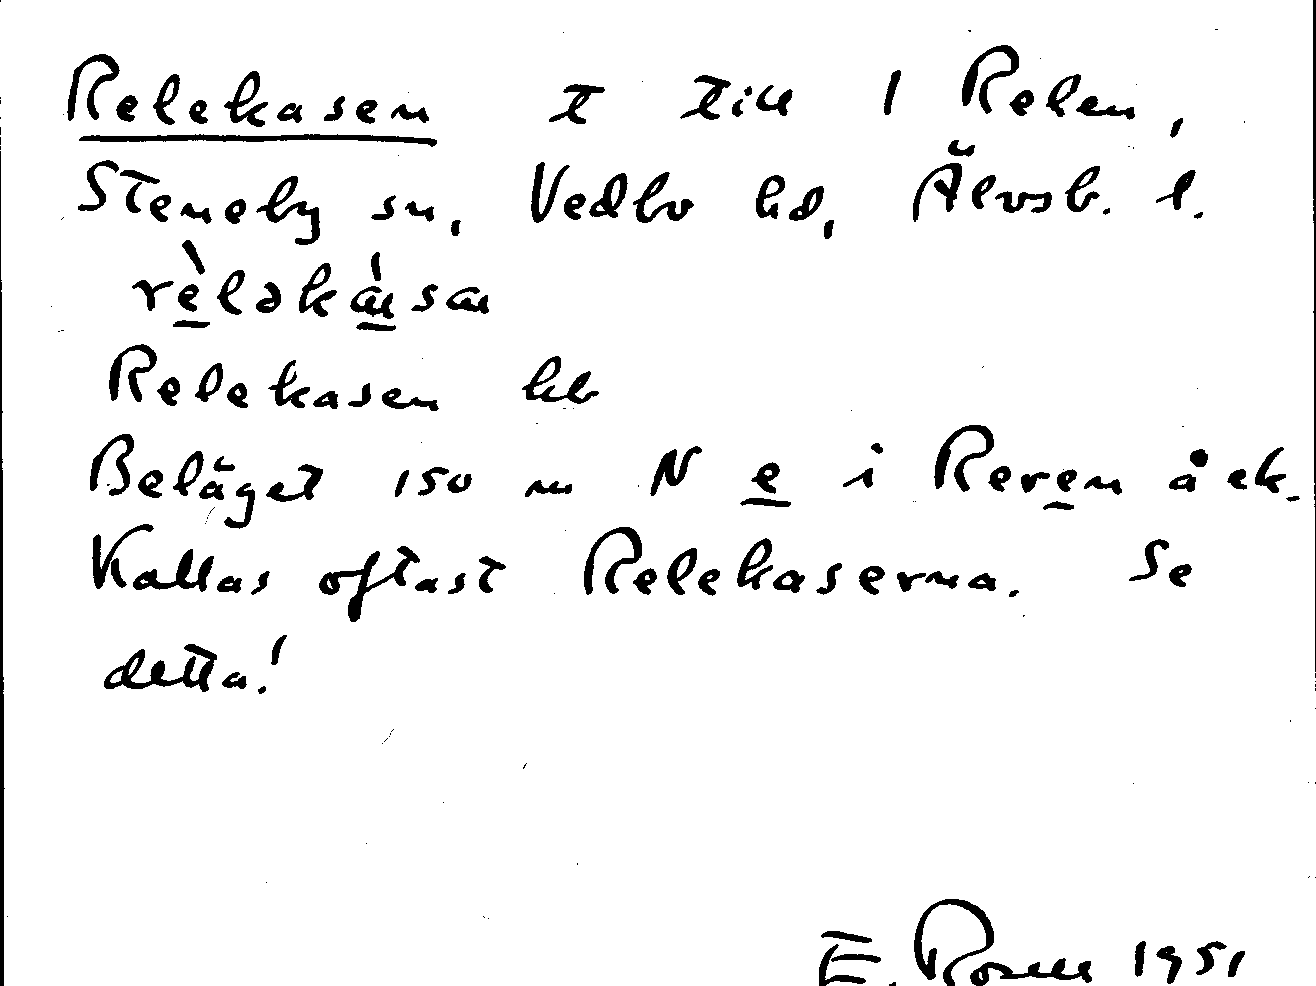 Relekasen t till 1 Relen,
Steneby sn, Vedbo hd, Älvsb. l.
rèləkàsan
Relekasen kb
Beläget 150 m N e i Reren å ek.
Kallas oftast Relekaserna. Se
detta!
E. Rosell 1951